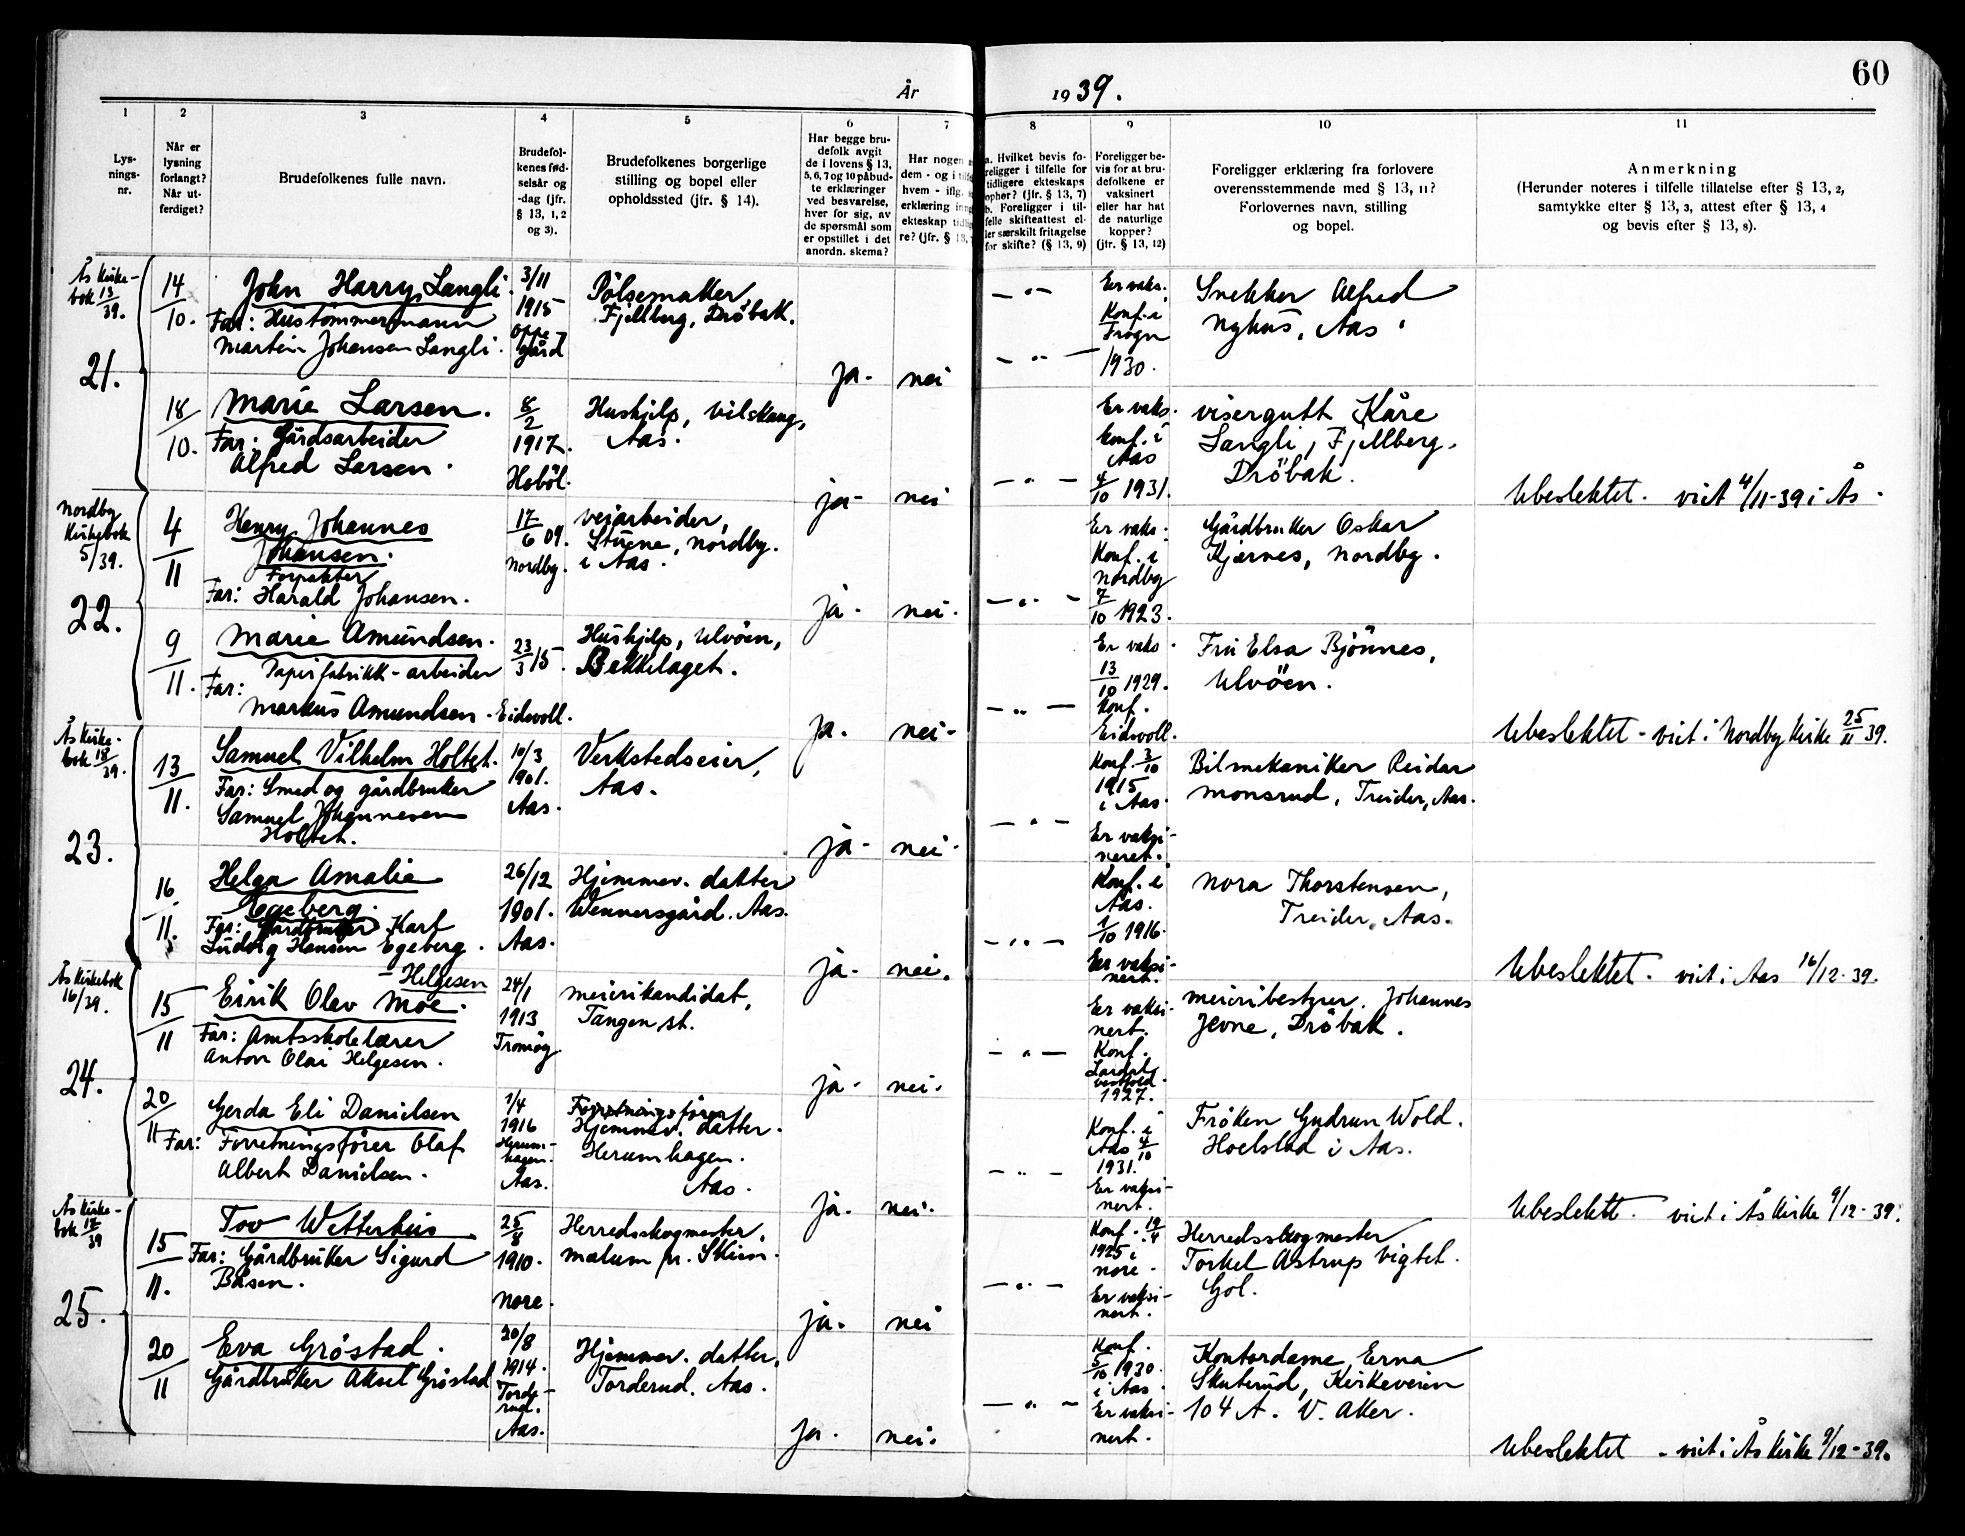 År 1939.
60
1
2
3
4
5
6
7
8
9
10
11
Lys-
nings-
nr.
Når er
lysning
forlangt?
Når ut-
ferdiget?
Brudefolkenes fulle navn.
Brudefol-
kenes fød-
selsår og
-dag (jfr.
§ 13, 1, 2
og 3).
Brudefolkenes borgerlige
stilling og bopel eller
opholdssted (jfr. § 14).
Har begge bru-
defolk avgit
de i lovens § 13,
5, 6, 7 og 10 påbud-
te erklæringer
ved besvarelse,
hver for sig, av
de spørsmål som
er opstillet i det
anordn. skema?
Har nogen
dem - og i
hvem - iflg.
erklæring
ekteskap
re? (jfr. § 13,
a. Hvilket bevis fo-
religger i tilfelle for
tidligere ekteskaps
ophør? (jfr. § 13, 7)
b. Foreligger i til-
felle skifteattest el-
ler særskilt fritagelse
for skifte? (§ 13, 9)
Foreligger be-
vis for at bru-
defolkene er
vaksinert
eller har hat
de naturlige
kopper?
(jfr. § 13, 12)
Foreligger erklæring fra forlovere
overensstemmende med § 13, 11?
Forlovernes navn, stilling
og bopel.
Anmerkning
(Herunder noteres i tilfelle tillatelse efter § 13, 2,
samtykke efter § 13, 3, attest efter § 13, 4
og bevis efter § 13, 8).
Ås Kirke-
bok 13/39.
21.
14/10.
John Harry Langli.
Far: Hustømmermann
Martin Johansen Langli.
3/11
1915
Oppe-
gård
Pölsemaker,
Fjellberg, Dröbak.
ja- nei
— " —
— " —
Er vaks.
Konf. i
Frogn
1930.
Snekker Alfred
Nyhus, Aas.
18/10.
Marie Larsen.
Far: Gårdsarbeider
Alfred Larsen.
8/2
1917.
Hoböl.
Hushjelp, Vilskang,
Aas.
ja- nei
— " —
Er vaks.
Konf. i
Aas
4/10 1931.
Visergutt Kåre
Langli, Fjellberg.
Dröbak.
Ubeslektet. viet 4/11-39 i Ås.
Nordby
Kirkebok
5/39.
22.
4/11
Henry Johannes
Johansen.
Forpakter
Far: Harald Johansen.
17/6 09.
Nordby.
Veiarbeider,
Stuene, Nordby.
i Aas.
ja- nei.
— " —
Er vaks.
Konf. i
Nordby
7/10 1923.
Gårdbruker Oskar
Kjærnes, Nordby.
9/11.
Marie Amundsen.
Papirfabrikk-arbeider
Far:
Markus Amundsen.
23/3 15.
Eidsvoll.
Hushjelp, Ulvöen,
Bekkelaget.
ja. nei-
— " —
Er vaks.
13/10 1929.
Konf.
Eidsvoll.
Fru Elsa Bjönnes,
Ulvöen.
Ubeslektet - viet i Nordby Kirke 25/11 39.
Ås Kirke-
bok 18/39.
23.
13/11.
Samuel Vilhelm Holtet.
Far: Smed og gårdbruker
Samuel Johannesen
Holtet.
10/3
1901.
Aas.
Verkstedseier,
Aas.
ja- nei-
— " —
Konf. 3/10
1915
i Aas.
Er vaksi-
neret.
Bilmekaniker Reidar
Monsrud, Treider, Aas.
16/11.
Helga Amalie
Egeberg.
Far: Gårdbruker Karl
Ludvig Hansen Egeberg.
26/12
1901.
Aas.
Hjemmev. datter
Wennersgård. Aas.
ja- nei.
— " —
Konf. i
Aas.
1/10 1916.
Er vaksi-
nert.
Nora Thorstensen,
Treider, Aas.
Ubeslektet. viet i Aas 16/12-39.
Ås Kirkebok
16/39.
24.
15/11
- Helgesen
Eirik Olav Moe.
Far: Amtsskolelærer
Anton Olai Helgesen.
24/1
1913
Tromöy
Meierikandidat,
Tangen st.
ja- nei.
— " —
Er vaksi-
nert.
Konf.
Lardal
Vestfold.
1927.
Meieribestyrer Johannes
Jevne, Dröbak.
20/11
Gerda Eli Danielsen
Far: Forretningsförer Olaf
Albert Danielsen.
1/4
1916
Herum-
hagen.
Aas.
Forretningsförer
Hjemmev. datter.
Herumhagen.
Aas.
ja. nei.
— " —
Konf. i
Aas 4/10
1931.
Er vaksi-
nert.
Fröken Gudrun Wold.
Hoelstad i Aas.
Ubeslektet. viet i Ås Kirke 9/12-39.
Ås Kirke-
bok 17/39
25.
15/11.
Tov Wetterhus
Far: Gårdbruker Sigurd
Båsen.
25/8
1910.
Nore.
Herredsskogmester,
Malum pr. Skien.
ja. nei
— " —
Konf. 19/4
1925 i
Nore.
Er vaksi-
nert.
Herredsskogmester
Torkel Astrup Vigtel.
Gol.
20/11
Eva Gröstad.
Gårdbruker Aksel Gröstad
20/8
1914.
Torde-
rud.
Aas.
Hjemmev. datter,
Torderud. Aas.
ja. nei.
— " —
Konf.
5/10 1930.
i Aas.
Er vaksi-
nert.
Kontordame Erna
Skuterud, Kirkeveien
104 A. V. Aker.
Ubeslektet - viet i Ås Kirke 9/12-39.